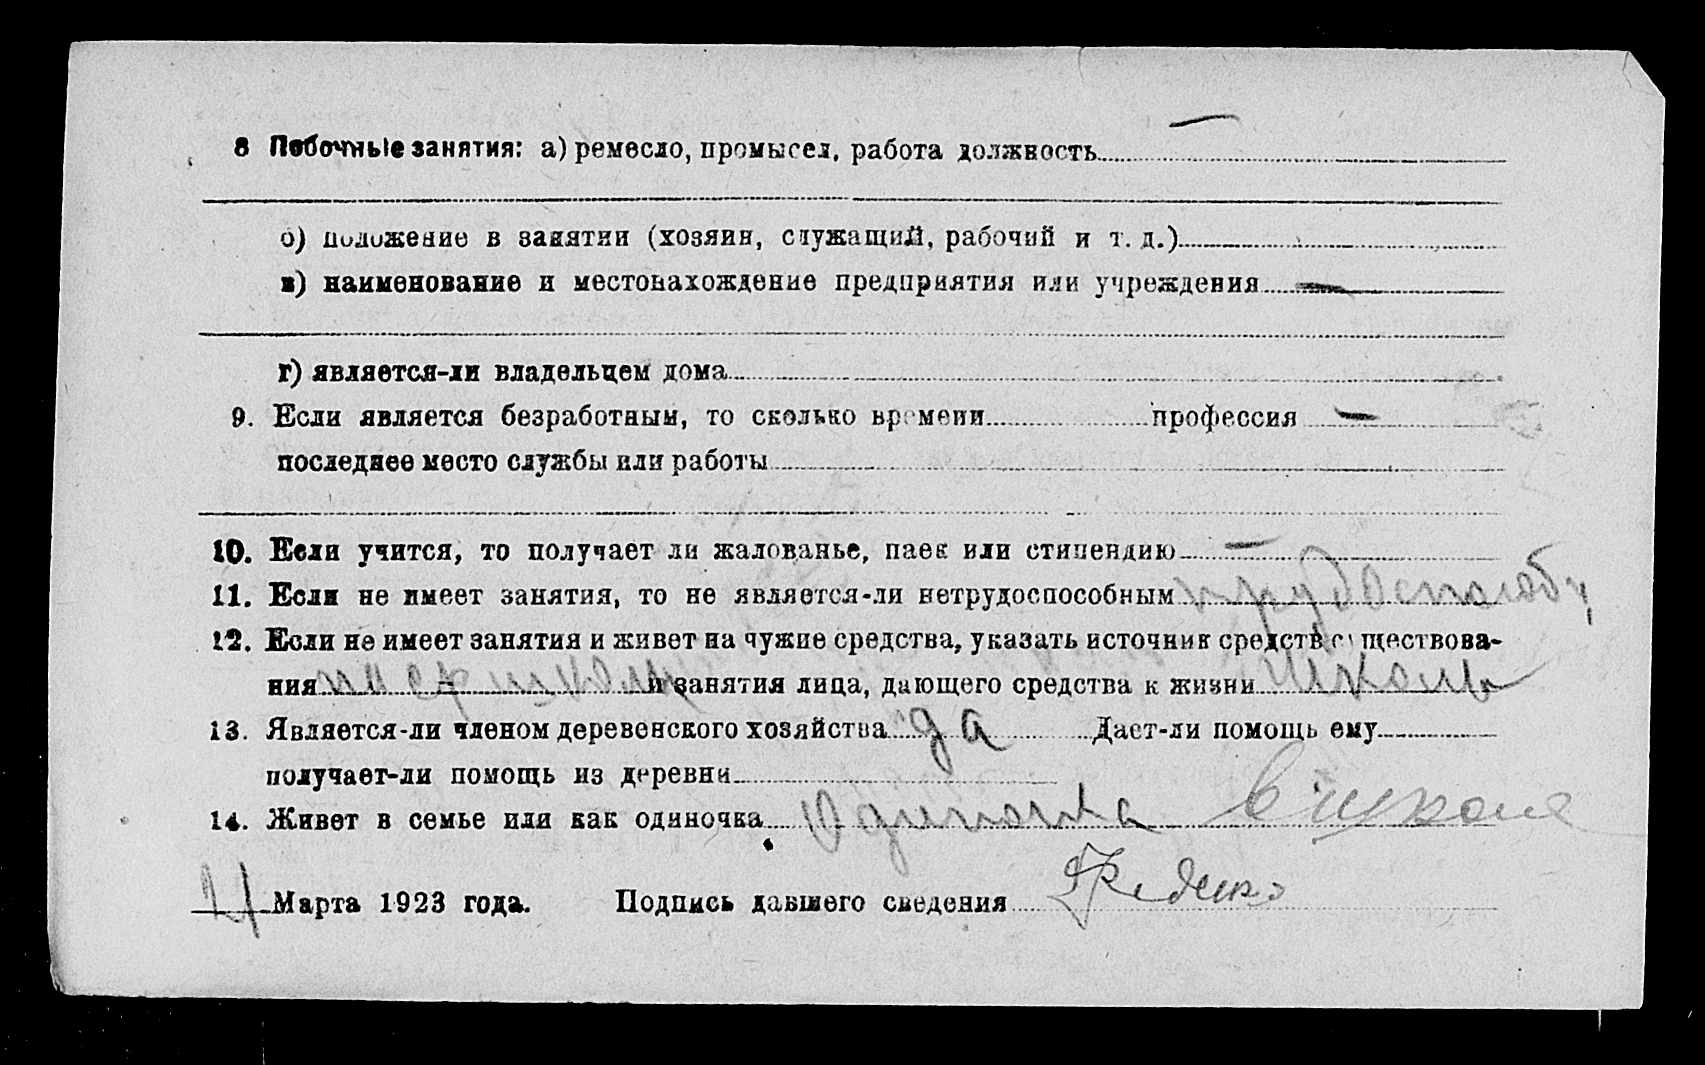 8 Побочные занятия: а) ремесло, промысел, работа должность —
б) положение в занятии (хозяин, служащий, рабочий и т. д.)
в) наименование и местонахождение предприятия или учреждения —
г) является-ли владельцем дома
9. Если является безработным, то сколько времени профессия —
последнее место службы или работы
10. Если учится, то получает ли жалованье, паек или стипендию —
11. Если не имеет занятия, то не является-ли нетрудоспособным трудоспособ
12. Если не имеет занятия и живет на чужие средства, указать источник средств существова-
ния и занятия лица, дающего средства к жизни школы
13. Является-ли членом деревенского хозяйства да Дает-ли помощь ему
получает-ли помощь из деревни
14. Живет в семье или как одиночка Одиночка в школе
Марта 1923 года. Подпись давшего сведения